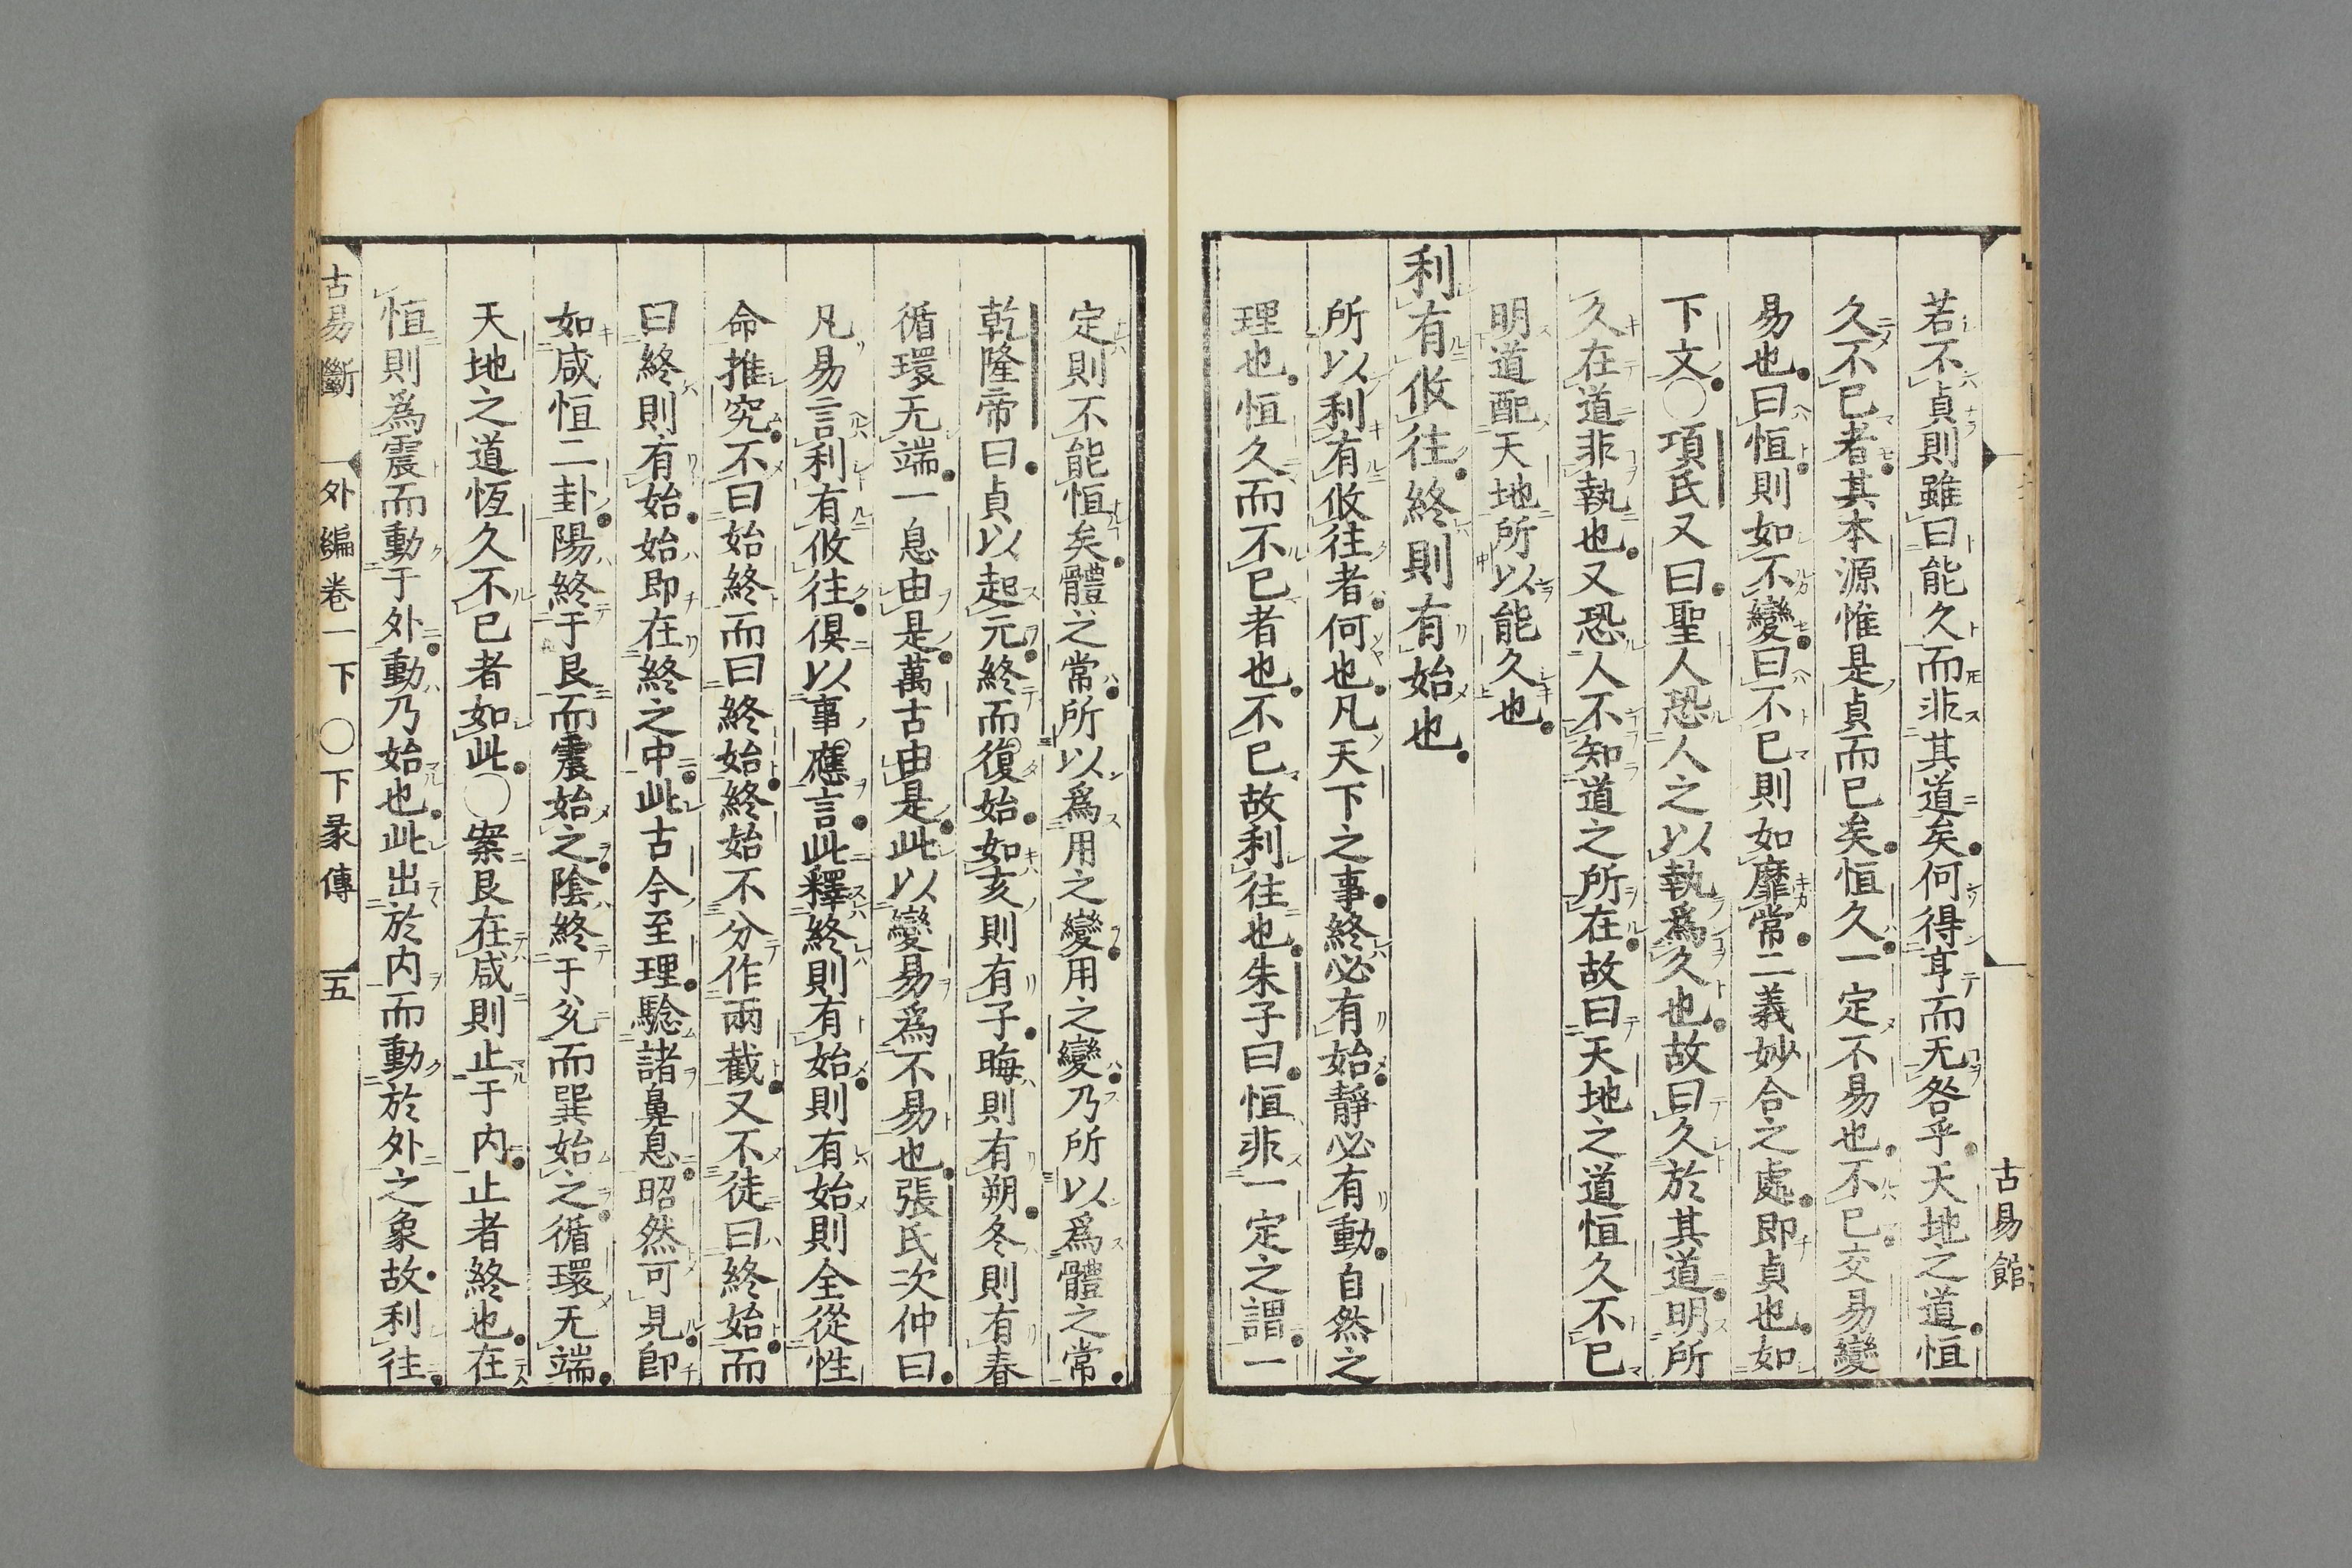 古易館
若不貞則雖曰能久而非其道矣何得亨而无咎乎天地之道恒
久不已者其本源惟是貞而已矣恒久一定不易也不已交易變
易也曰恒則如不變曰不已則如靡常二義妙合之處即貞也如
下文〇項氏又曰聖人恐人之以執爲久也故曰久於其道明所
久在道非執也又恐人不知道之所在故曰天地之道恒久不已
明道配天地所以能久也
利有攸往終則有始也
所以利有攸往者何也凡天下之事終必有始靜必有動自然之
理也恒久而不已者也不已故利往也朱子曰恒非一定之謂一
定則不能恒矣體之常所以爲用之變用之變乃所以爲體之常
乾隆帝曰貞以起元終而復始如亥則有子晦則有朔冬則有春
循環无端一息由是萬古由是此以變易爲不易也張氏次仲曰
凡易言利有攸往俱以事應言此釋終則有始則有始則全從性
命推究不曰始終而曰終始終始不分作兩截又不徒曰終始而
曰終則有始始即在終之中此古今至理驗諸鼻息昭然可見即
如咸恒二卦陽終于艮而震始之陰終于兌而巽始之循環无端
天地之道恆久不已者如此〇案艮在咸則止于内止者終也在
恒則為震而動于外動乃始也此出於内而動於外之象故利往
古易斷 外編卷一下 〇下彖傳 五